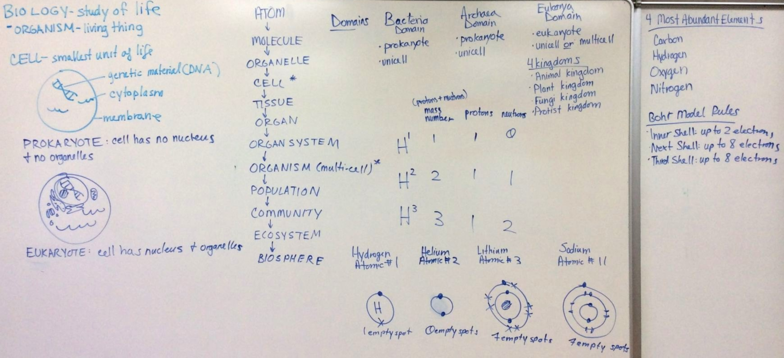 BIOLOGY - study of life
- ORGANISM - living thing
CELL - smallest unit of life
genetic material (DNA)
cytoplasm
membrane
PROKARYOTE: cell has no nucleus
+ no organelles
EUKARYOTE: cell has nucleus + organelles
ATOM
MOLECULE
ORGANELLE
CELL *
TISSUE
ORGAN
ORGAN SYSTEM
ORGANISM (multi-cell) *
POPULATION
COMMUNITY
ECOSYSTEM
BIOSPHERE
Domains
Bacteria
Domain
· prokaryote
· unicell
Archaea
Domain
· prokaryote
· unicell
Eukarya
Domain
· eukaryote
· unicell or multicell
4 kingdoms
· Animal kingdom
· Plant kingdom
· Fungi kingdom
· Protist kingdom
(protons + neutrons)
mass
number protons neutrons
H1 1 1 0
H2 2 1 1
H3 3 1 2
Hydrogen
Atomic # 1
H
1 empty spot
Helium
Atomic # 2
0 empty spots
Lithium
Atomic # 3
7 empty spots
Sodium
Atomic # 11
7 empty spots
4 Most Abundant Elements
Carbon
Hydrogen
Oxygen
Nitrogen
Bohr Model Rules
· Inner Shell: up to 2 electrons
· Next Shell: up to 8 electrons
· Third Shell: up to 8 electrons